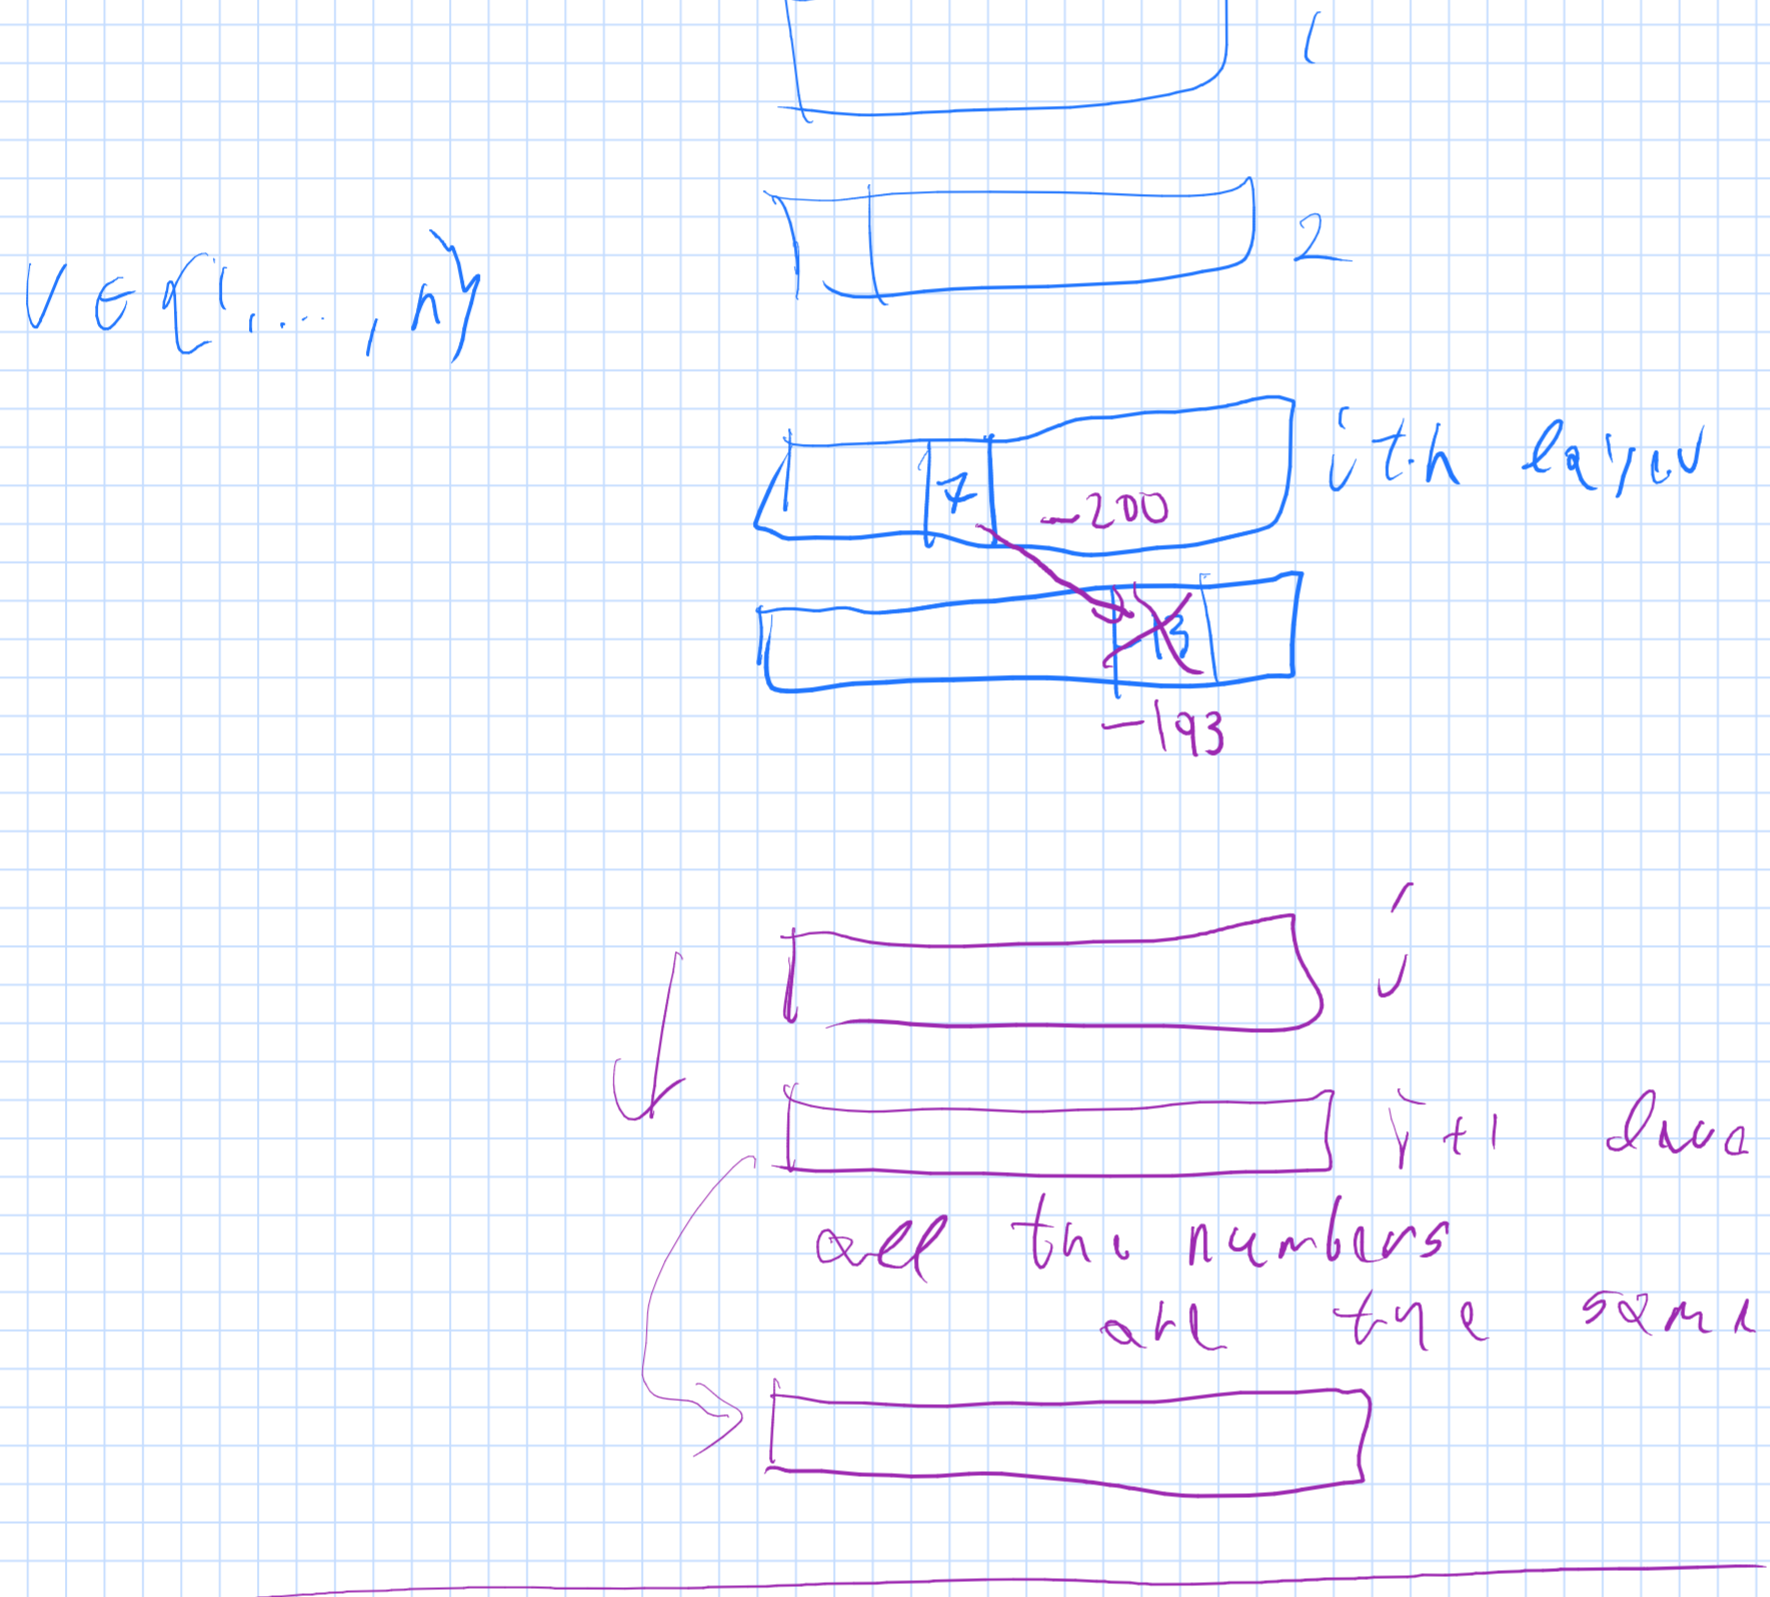 1
2
V ∈ {1, ..., n}
i th layer
7
-200
13
-193
i
i+1
all the numbers
are the same